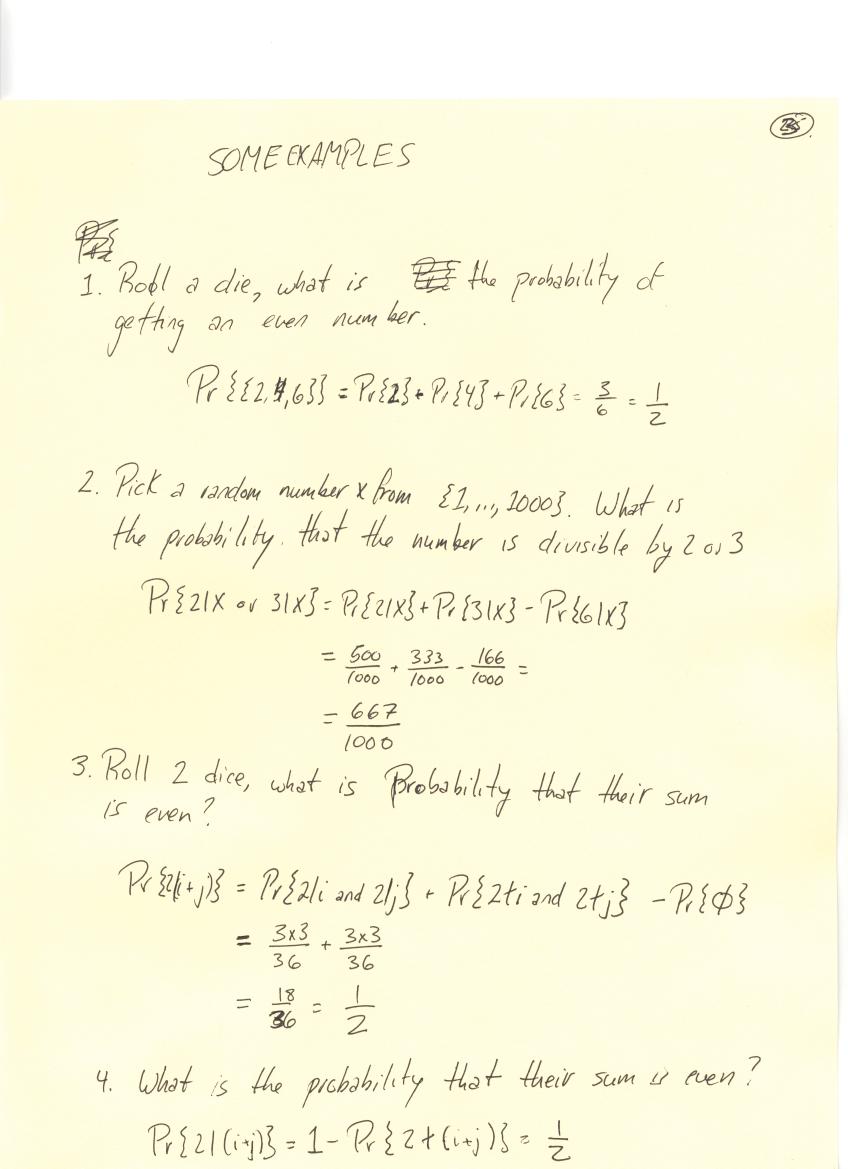 SOME EXAMPLES
1. Roll a die, what is the probability of
getting an even number.
Pr{{2,4,6}} = Pr{2} + Pr{4} + Pr{6} = 3/6 = 1/2
2. Pick a random number x from {1,...,1000}. What is
the probability. that the number is divisible by 2 or 3
Pr{2|x or 3|x} = Pr{2|x} + Pr{3|x} - Pr{6|x}
= 500/1000 + 333/1000 - 166/1000 =
= 667/1000
3. Roll 2 dice, what is Probability that their sum
is even?
Pr{2|(i+j)} = Pr{2|i and 2|j} + Pr{2∤i and 2∤j} - Pr{∅}
= 3x3/36 + 3x3/36
= 18/36 = 1/2
4. What is the probability that their sum is even?
Pr{2|(i+j)} = 1 - Pr{2∤(i+j)} = 1/2